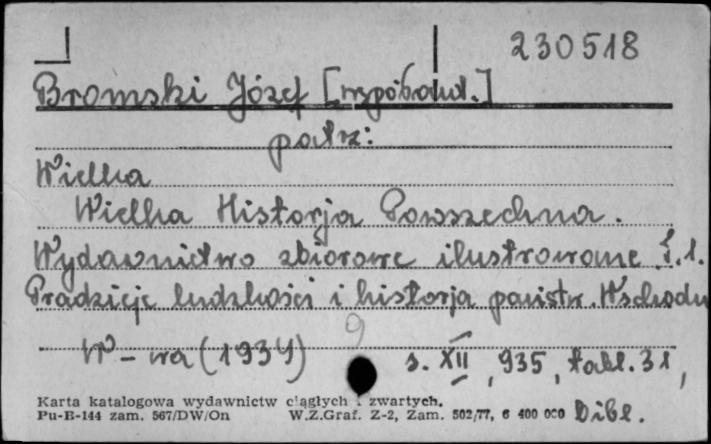 230518
Bromski Józef [współaut.]
patrz:
Wielka
Wielka Historja Powszechna.
Wydawnictwo zbiorowe ilustrowane. T.1.
Pradzieje ludzkości i historja państw Wschodu
9
W-wa (1934) s. XII, 935, tabl. 31,
Karta katalogowa wydawnictw ciągłych i zwartych.
Pu-B-144 zam. 567/DW/On W.Z.Graf. Z-2, Zam. 502/77, 6 400 000 Bibl.